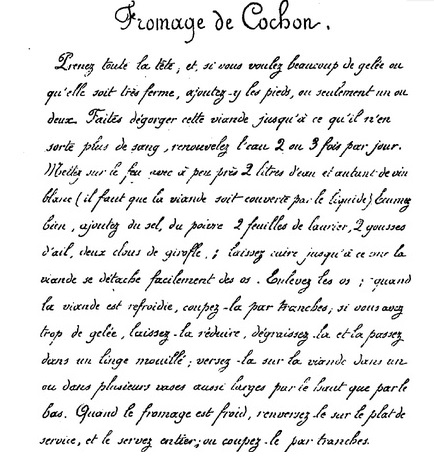 Fromage de Cochon.
Prenez toute la tête; et, si vous voulez beaucoup de gelée ou
qu'elle soit très ferme, ajoutez-y les pieds, ou seulement un ou
deux. Faites dégorger cette viande jusqu'à ce qu'il n'en
sorte plus de sang, renouvelez l'eau 2 ou 3 fois par jour.
Mettez sur le feu avec à peu près 2 litres d'eau et autant de vin
blanc (il faut que la viande soit couverte par le liquide) Ecumez
bien, ajoutez du sel, du poivre 2 feuilles de laurier, 2 gousses
d'ail, deux clous de girofle; laissez cuire jusqu'à ce que la
viande se détache facilement des os. Enlevez les os; quand
la viande est refroidie, coupez-la par tranches; si vous avez
trop de gelée, laissez-la réduire, dégraissez-la et la passez
dans un linge mouillé; versez-la sur la viande dans un
ou dans plusieurs vases aussi larges par le haut que par le
bas. Quand le fromage est froid, renversez-le sur le plat de
service, et le servez entier, ou coupez-le par tranches.